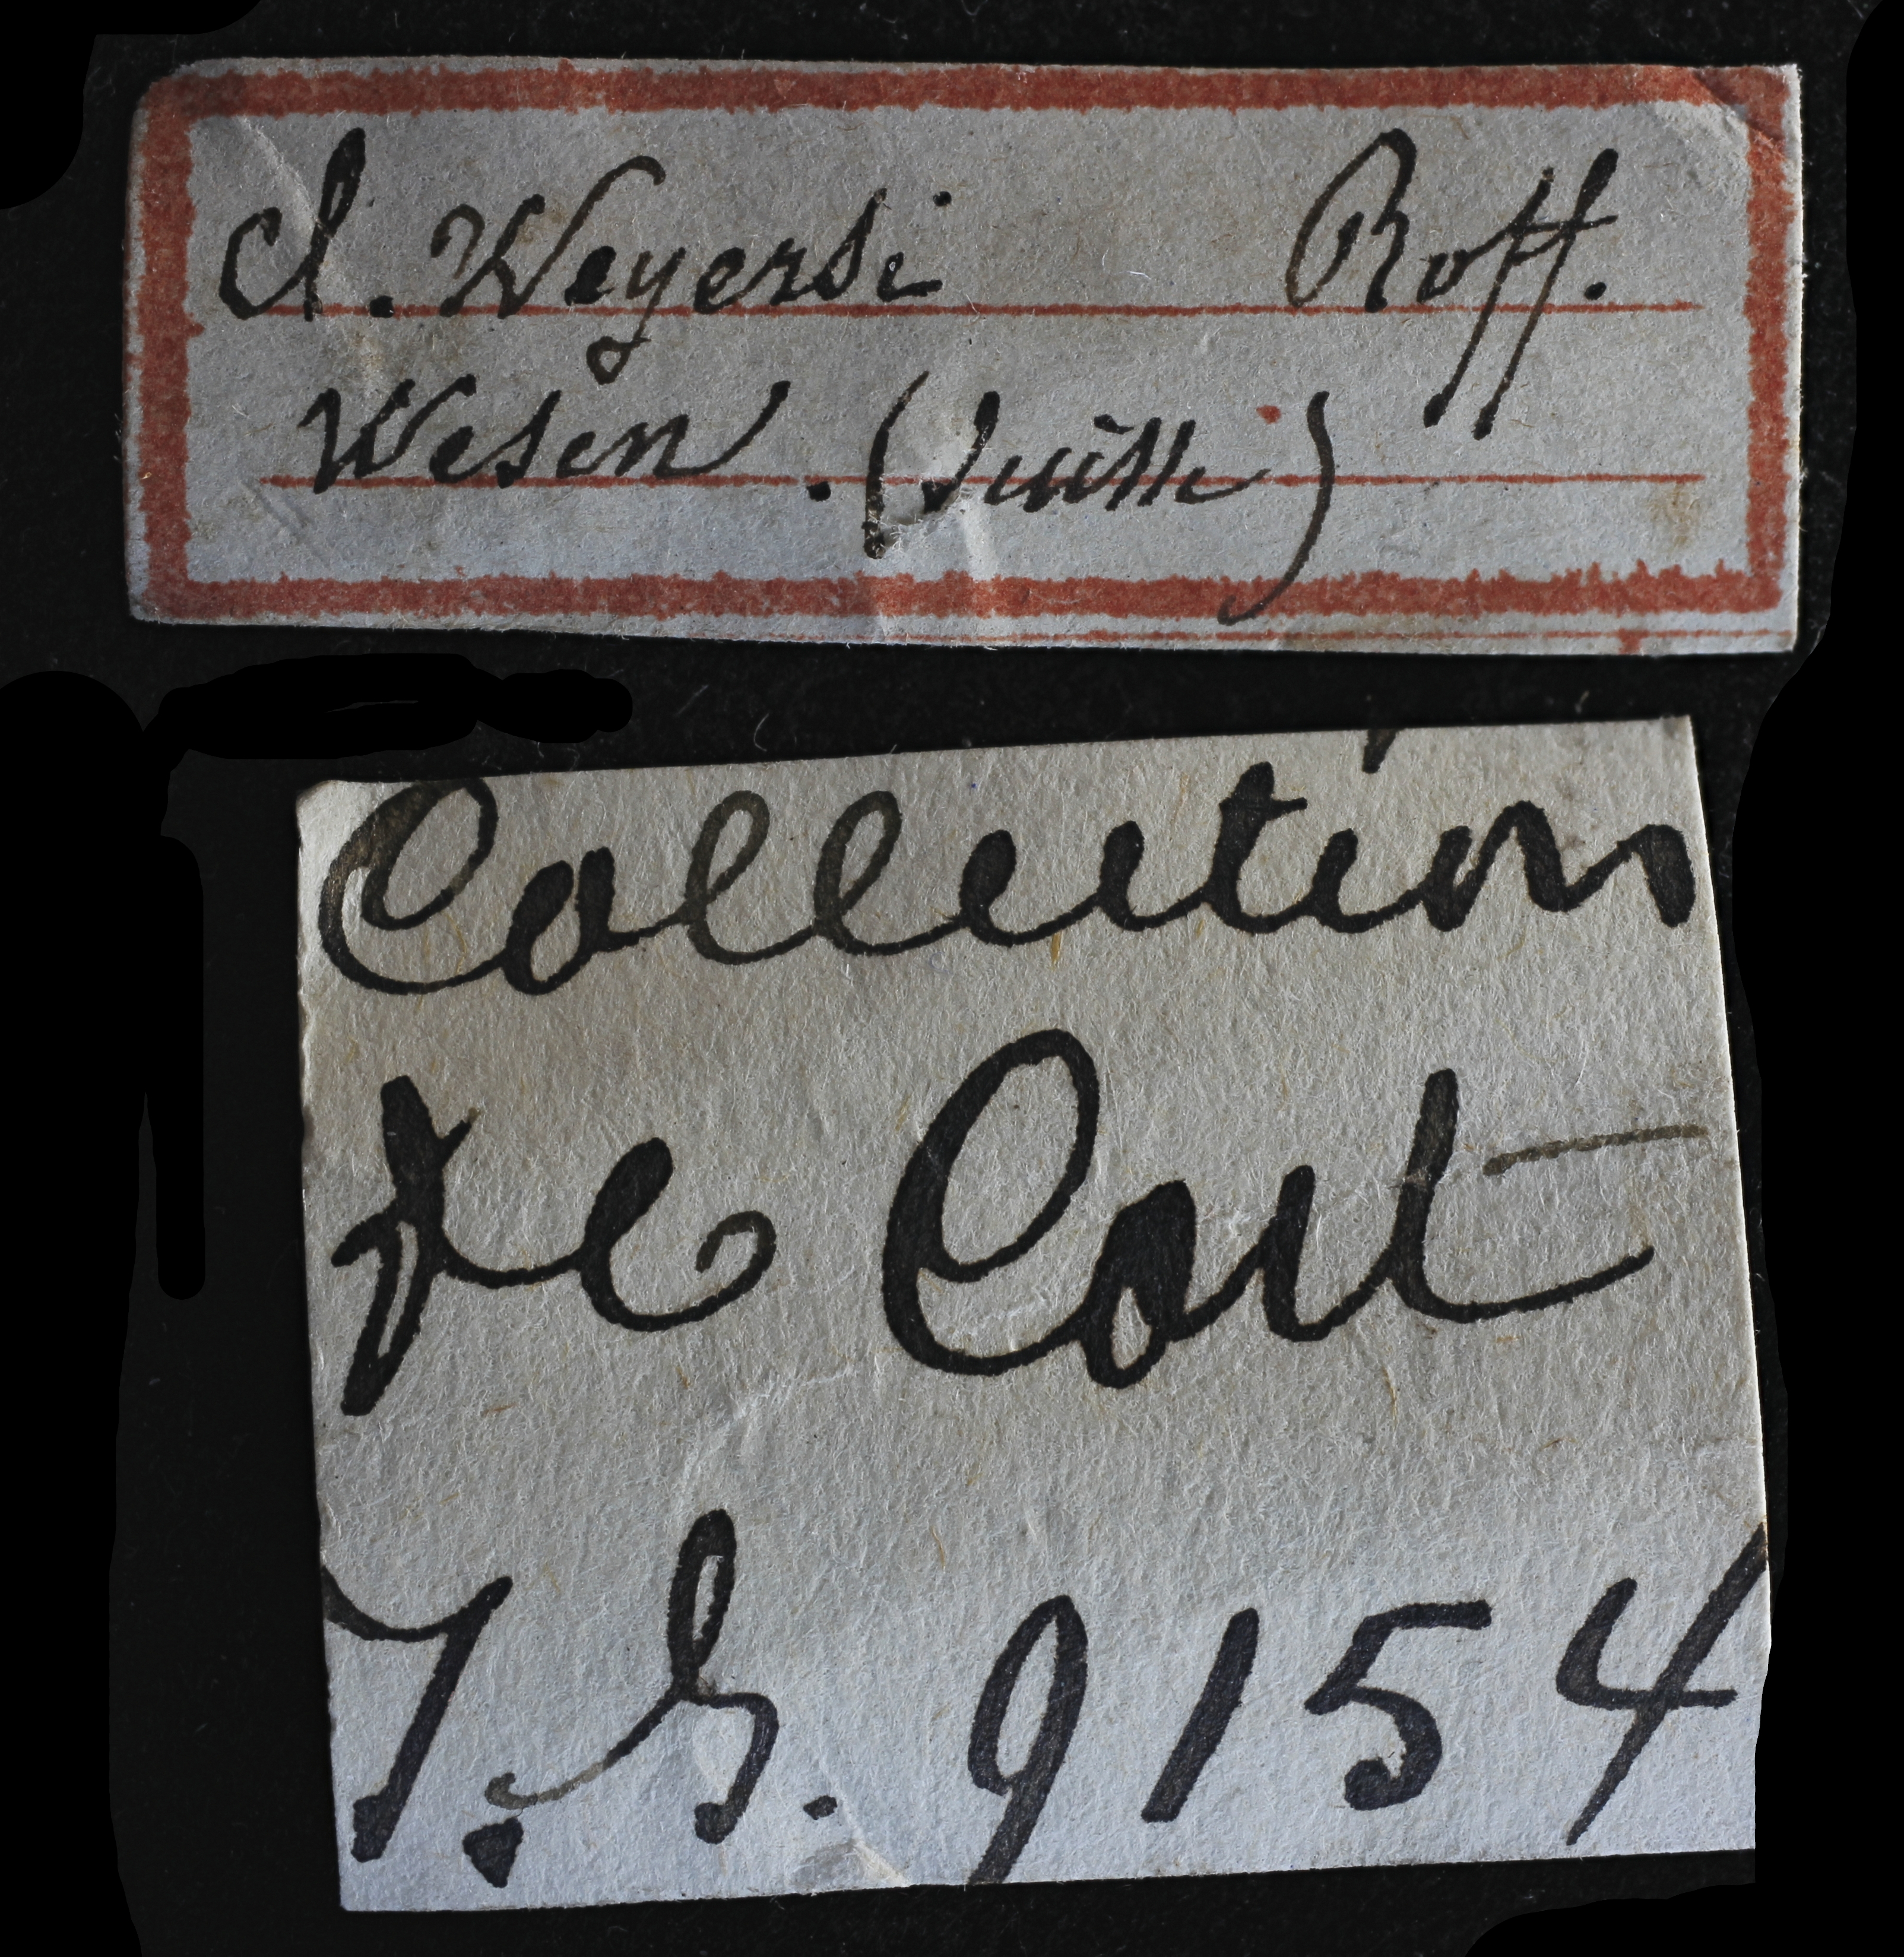 Cl. Weyersi Roff.
Wesen . (Suisse)
Collection
de Cort
I.G. 9154